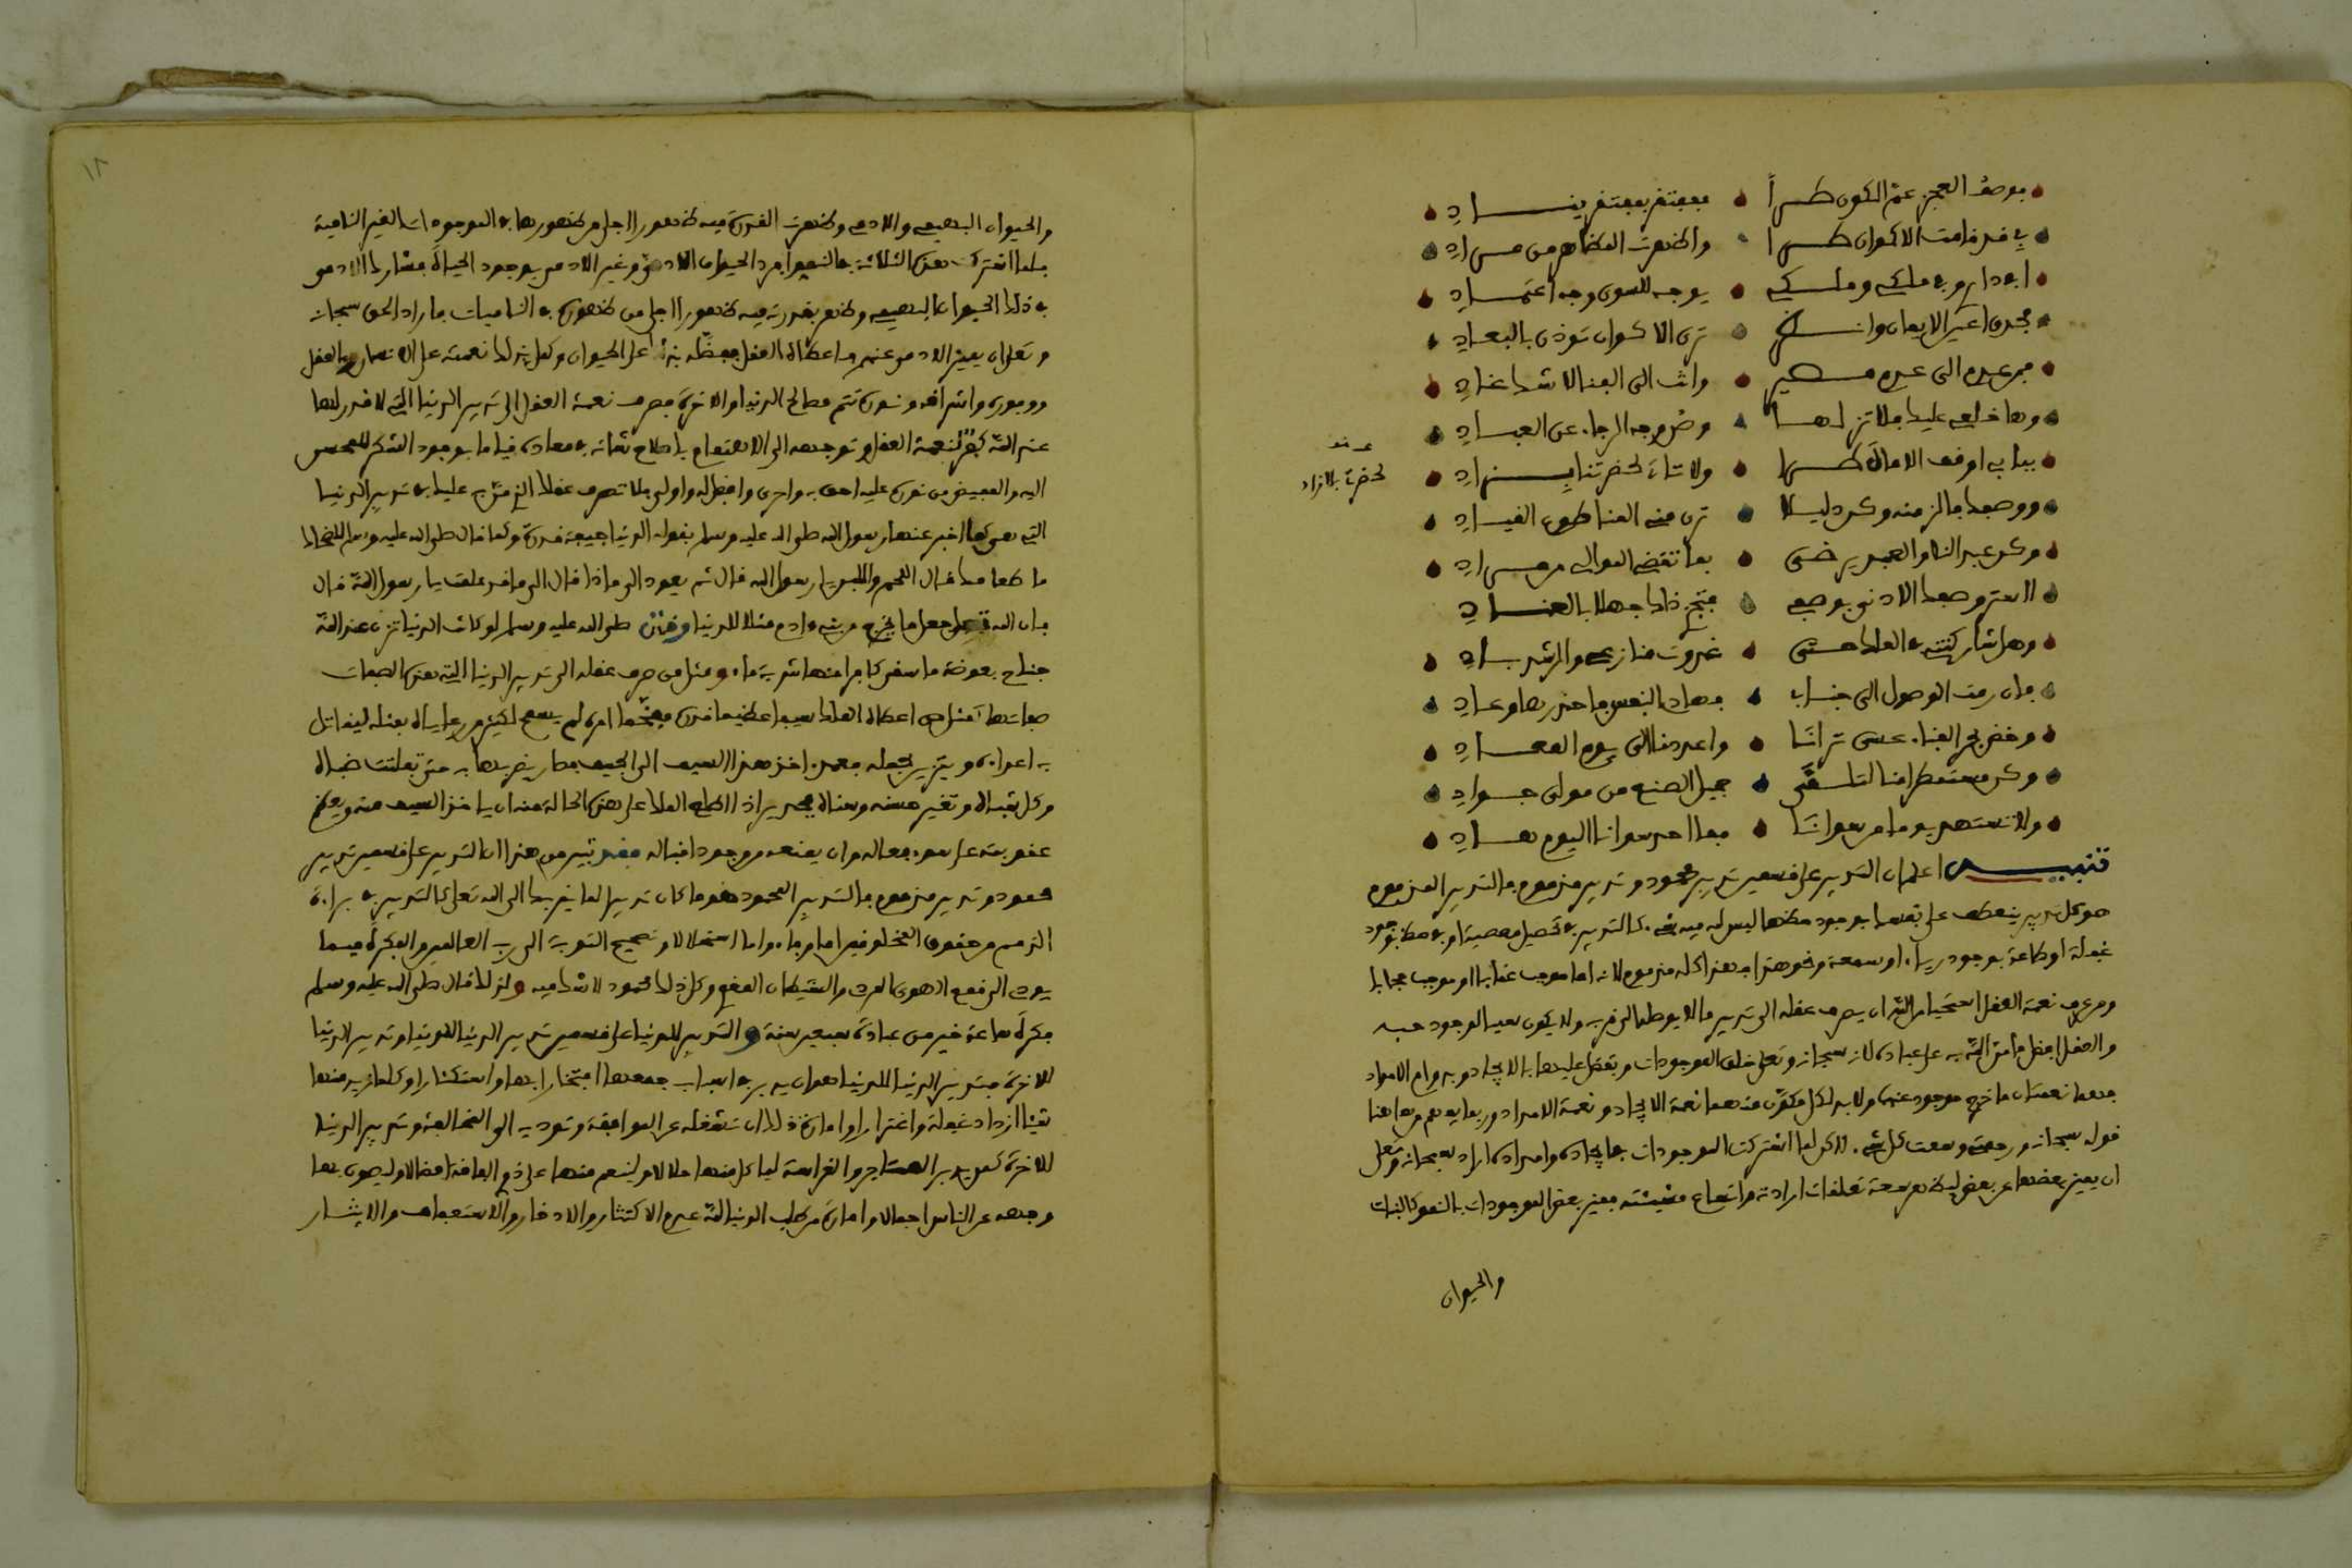 بوصف العجز عمّ الكون طـــراً • فمفتقر بمفتقر ينـــادِ
بي قد قامت الاكوان طـــرا • واظهرت المظاهر من مـــرادِ
افي داري وفي ملكي وملكي • يوجه للسوى وجه اعتمـــادِ
فحدق اعين الايمان وانـــظر • ترى الاكوان توذن بالنفـــادِ
فمن عدم الى عدم مصيـــر • وانت الى الفنا لاشك غـــادِ
وها خلعي عليك فلا تزلهـــا • وصن وجه الرجاء عن العبـــادِ
ببابي اوقف الامال طـــرا • ولا تات لحضرتنا بـــزادِ
عند
لحضرتنا بالازاد
ووصفك فالزمنه وكن ذليـــلا • ترى مني المنا طوع القيـــادِ
وكن عبدا لنا والعبد يرضـــى • بما تقضي الموالي من مـــرادِ
ااستر وصفك الادنى بوصفي • فتجزي ذاك جهلا بالعنـــادِ
وهل شاركتني في الملك حتـــى • غدوت منازعي والرشد بـــادِ
فان رمت الوصول الى جنـــاب • فهاذي النفس فاحذرها وعـــادِ
وخض بحر الفناء عسى ترانـــا • واعددنا الى يوم المعـــادِ
وكن مستمطرا منا لتلـــقى • جميل الصنع من مولى جـــوادِ
ولا تستهد يوما من سوانـــا • فما احد سوانا اليوم هـــادِ
تنبيـــه اعلم ان التدبير على قسمين تدبير محمود وتدبير مذموم فالتدبير المذموم
هو كل تدبير ينعطف على نفسك بوجود حظها ليس لله فيه شيء كالتدبير في تحصيل معصية او في حظ بوجود
غفلة او طاعة بوجود رياء او سمعة ونحو هذا فهذا كله مذموم لانه اما موجب عقابا او موجب حجابا
ومن عرف نعمة العقل استحيا من الله ان يصرف عقله الى تدبير ما لا يوصله الى قربه ولا يكون سببا لوجود حبه
والعقل افضل ما منّ الله به على عباده لانه سبحانه وتعلى خلق الموجودات وتفضل عليها بالايجاد وبدوام الامداد
فهما نعمتان ما خرج موجود عنهما ولا بد لكل مكون منهما نعمة الايجاد ونعمة الامداد وربما يفهم من هاهنا
قوله سبحانه ورحمتي وسعت كل شيء لاكن لما اشتركت الموجودات في ايجاده وامداده اراد سبحانه وتعلى
ان يميز بعضها عن بعض ليظهر سعة تعلقات ارادته واتساع مشيئته فميز بعض الموجودات بالنمو كالنبات
والحيوان
١٨
والحيوان البهيمي والادمي وظهرت القدرة فيه ظهورا اجلى من ظهورها في الموجودات الغير النامية
فلما اشتركت هذه الثلاثة في النمو افرد الحيوان الادمي وغير الادمي بوجود الحياة فشارك الادمي
في ذلك الحيوان البهيمي وظهر بقدرته فيه ظهورا اجلى من ظهوره في الناميات فاراد الحق سبحانه
وتعلى ان يميز الادمي عنهم فاعطاه العقل وفضله بذلك على الحيوان وكمل بذلك نعمته على الانسان وبالعقل
ووفوره واشراقه ونوره تتم مصالح الدنيا والاخرة فصرف نعمة العقل الى تدبير الدنيا التي لا قدر لها
عند الله كفر لنعمة العقل وتوجهه الى الاهتمام باصلاح شانه في معاده قياما بوجود الشكر للمحسن
اليه والمفيض من نوره عليه احق به واحرى وافضل له واولى فلا تصرف عقلك الذي منّ به عليك في تدبير الدنيا
التي هي كما اخبر عنها رسول الله صلى الله عليه وسلم بقوله الدنيا جيفة قذرة وكما قال صلى الله عليه وسلم للضحاك
ما طعامك قال اللحم واللبن يارسول الله قال ثم يعود الى ماذا قال الى ما قد علمت يا رسول الله قال
فان الله جعل ما يخرج من بني ءادم مثلا للدنيا وقال صلى الله عليه وسلم لو كانت الدنيا تزن عند الله
جناح بعوضة ما سقى كافرا منها شربة ماء ومثل من صرف عقله الى تدبير الدنيا التي هذه الصفات
صفاتها كمثل من اعطاه الملك سيفا عظيما قدره مفخما امره لم يسمح لكثير من رعاياه بمثله ليقاتل
به اعداءه ويتزين بحمله فعمد اخذ هذا السيف الى الجيف فصار يضربها به حتى تفللت ضباه
وكل شباه وتغير حسنه وسناه فجدير اذا اطلع الملك على هذه الحالة منه ان ياخذ السيف منه ويعظم
عقوبته على سوء فعاله وان يمنعه من وجود اقباله فقد تبين من هذا ان التدبير على قسمين تدبير
محمود وتدبير مذموم فالتدبير المحمود هو ما كان تدبيرا لما يقربك الى الله تعلى كالتدبير في براءة
الذمم من حقوق المخلوقين اما وفاء واما استحلالا وتصحيح التوبة الى رب العالمين والفكرة فيما
يودي الى قمع الهوى المردي والشيطان المغوي وكل ذلك محمود لا شك فيه ولذلك قال صلى الله عليه وسلم
فكرة ساعة خير من عبادة سبعين سنة والتدبير للدنيا على قسمين تدبير الدنيا للدنيا وتدبير الدنيا
للاخرة فتدبير الدنيا للدنيا هو ان يدبر في اسباب جمعها افتخارا بها واستكثارا وكلما زيد منها
شيئا ازداد غفلة واغترارا وامارة ذلك ان تشغله عن الموافقة وتوديه الى المخالفة وتدبير الدنيا
للاخرة كمن يدبر المتاجر والغراسة لياكل منها حلالا ولينعم منها على ذوي الفاقة افضالا وليصون بها
وجهه عن الناس اجمالا وامارة من طلب الدنيا لله عدم الاكتثار والادخار والاسعاف والايثـــار